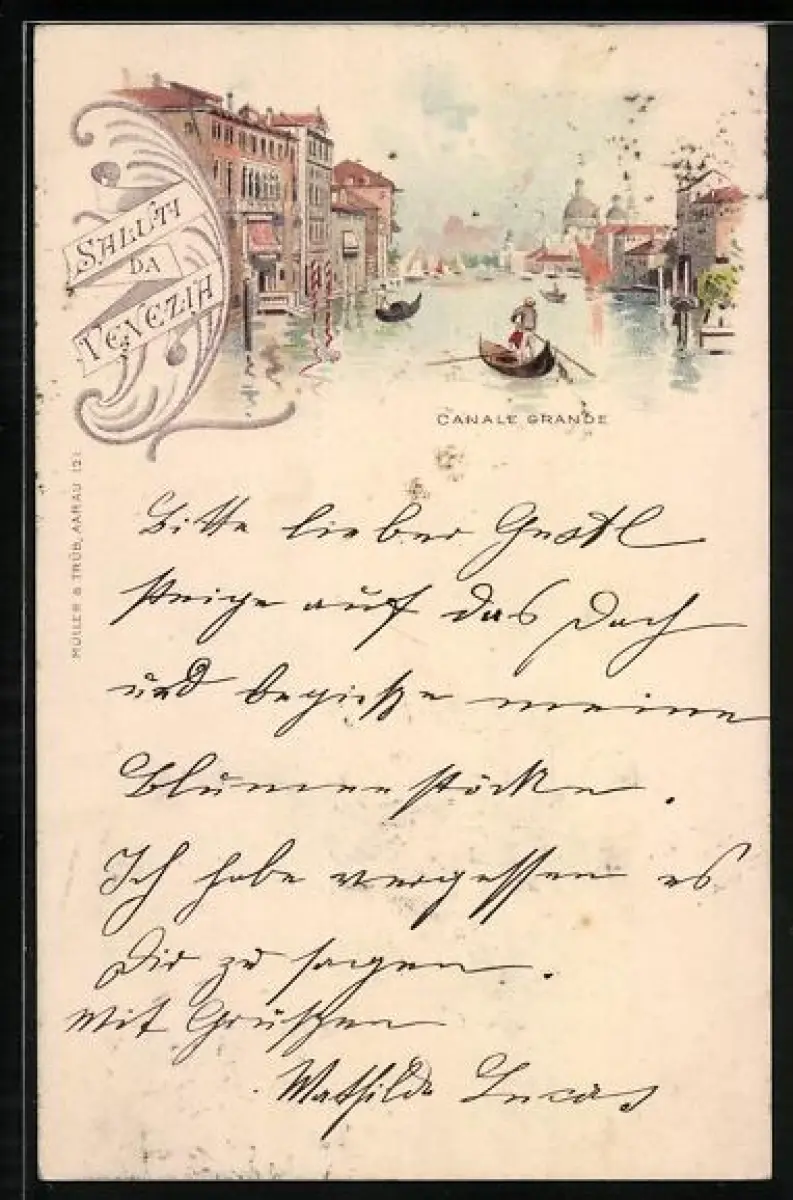 SALUTI
DA
VENEZIA
CANALE GRANDE
MÜLLER & TRÜB, AARAU 121
Bitte lieber Gustl
steige auf das Dach
und begieße meine
Blumenstöcke.
Ich habe vergessen es
Dir zu sagen.
Mit Grüßen
Mathilde Lucas